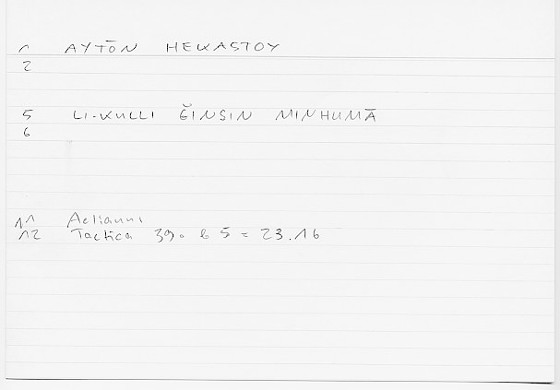 1 AYTŌN HEKASTOY
2
5 LI-KULLI ĞINSIN MINHUMĀ
6
11 Aelianus
12 Tactica 39. 6 5 = 23.16